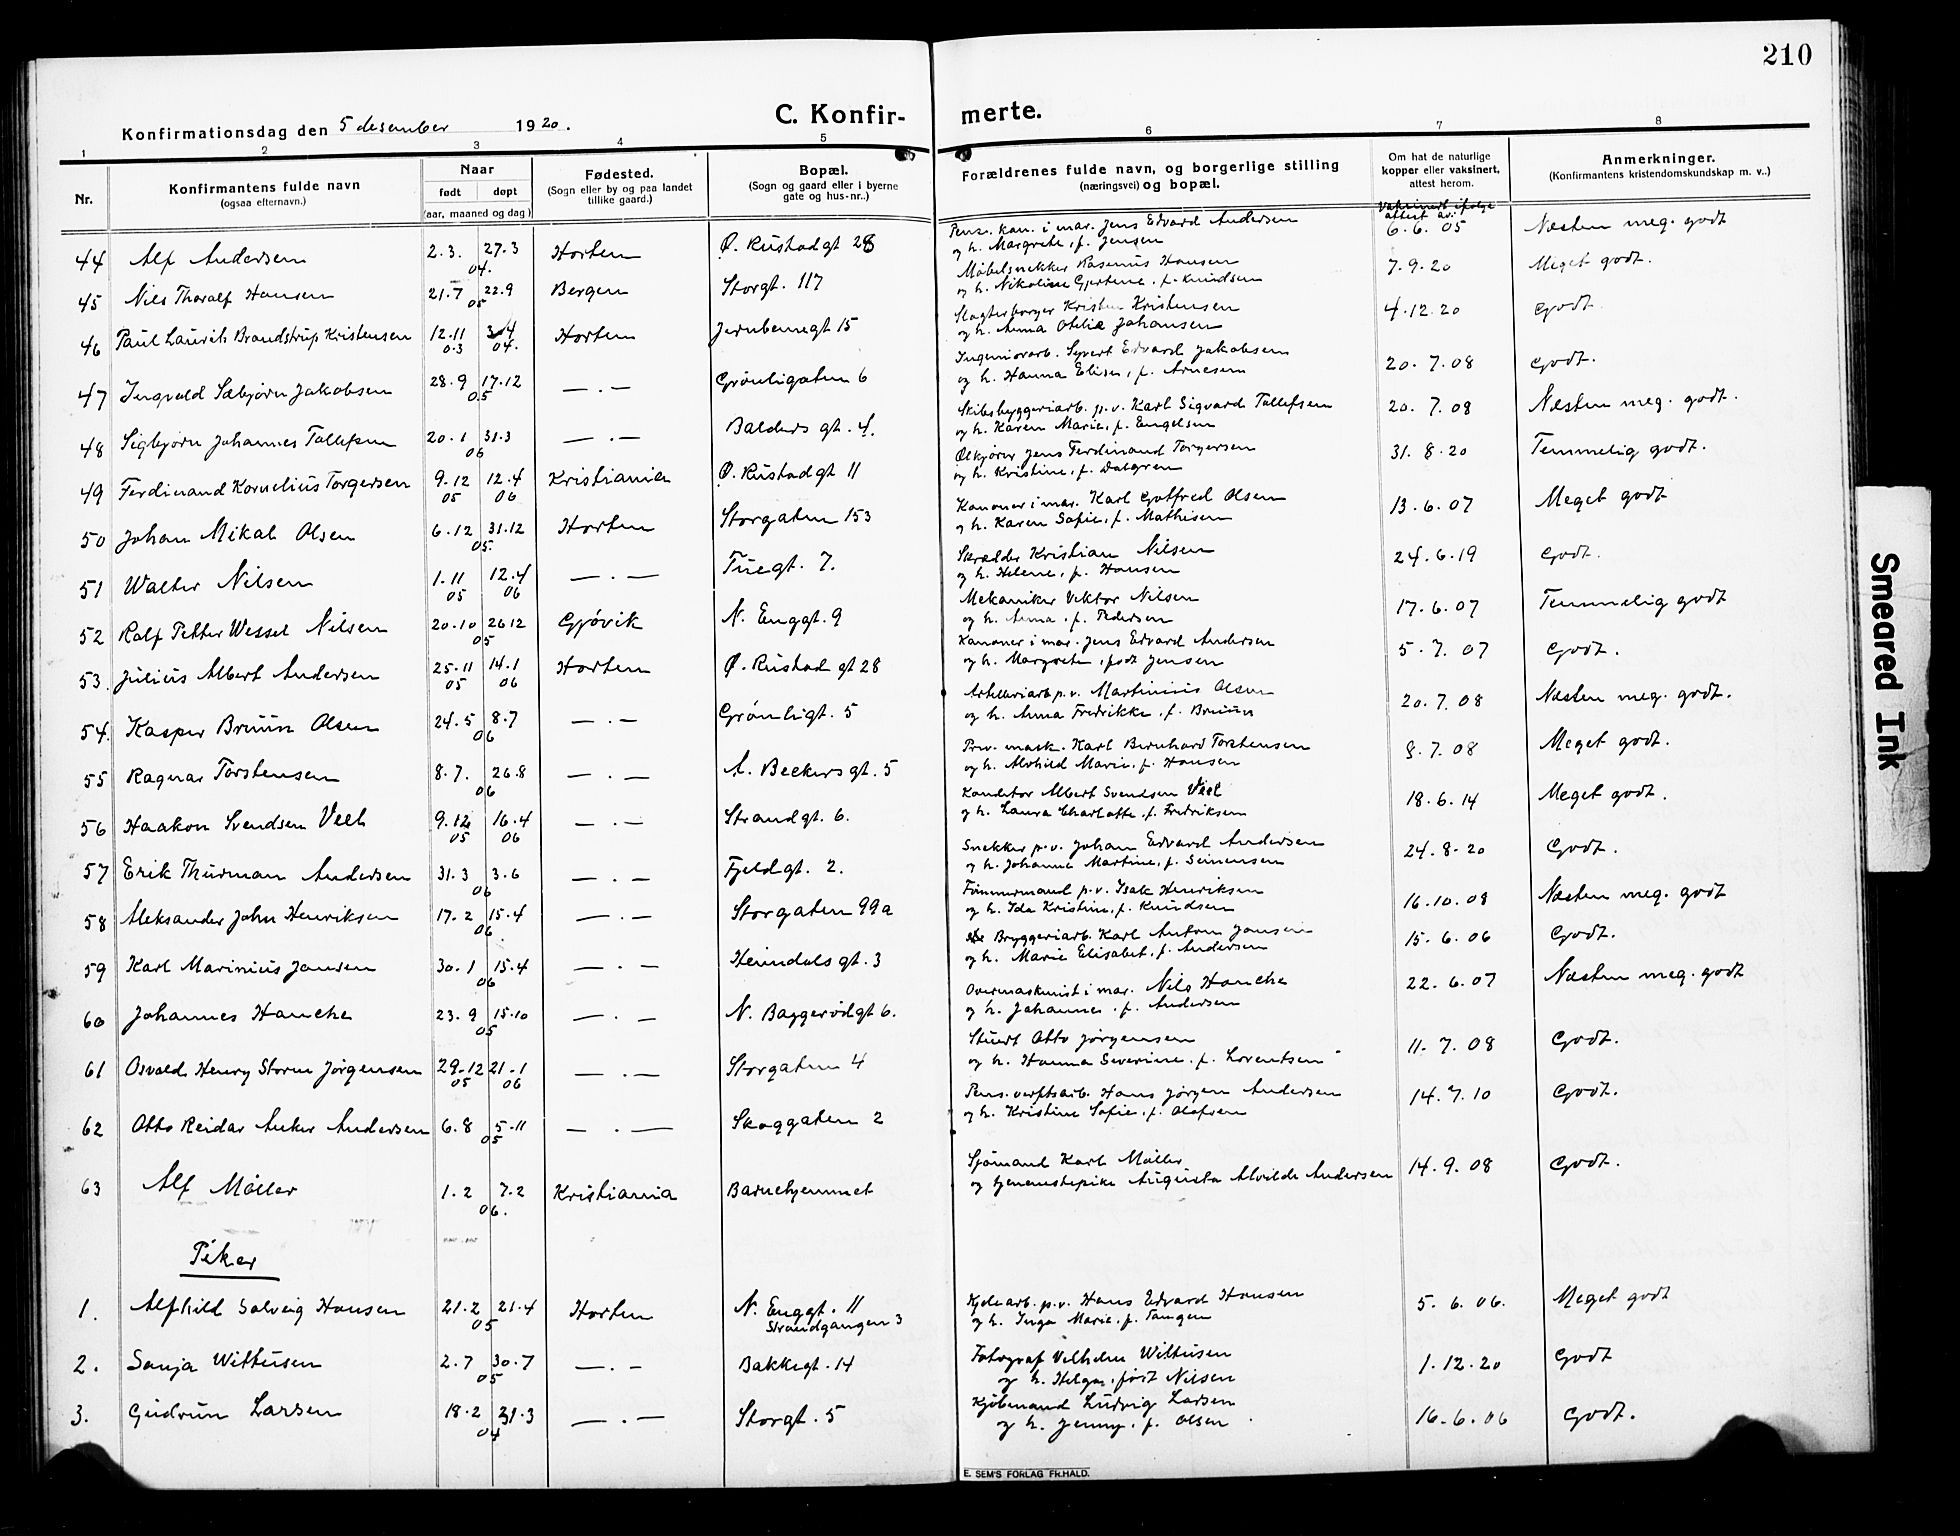 210
Konfirmationsdag den 5 desember 1920.
C. Konfir- merte.
1 2 3 4 5 6 7 8
Nr.
Konfirmantens fulde navn
(ogsaa efternavn.)
Naar
født døpt
(aar, maaned og dag)
Fødested.
(Sogn eller by og paa landet
tillike gaard.)
Bopæl.
(Sogn og gaard eller i byerne
gate og hus-nr..)
Forældrenes fulde navn, og borgerlige stilling
(næringsvei) og bopæl.
Om hat de naturlige
kopper eller vaksinert,
attest herom.
Anmerkninger.
(Konfirmantens kristendomskundskap m. v..)
Vaksinert ifølge
attest av:
44 Alf Andersen 2.3. 27.3 04. Horten Ø. Rustadgt 28 Pens. kan. i mar. Jens Edvard Andersen
og h. Margrete, f. Jensen 6.6.05 Næsten meg. godt
45 Nils Thoralf Hansen 21.7 22.9 05 Bergen Storgt. 117 Møbelsnekker Rasmus Hansen
og h. Nikoline Gjertine, f. Knudsen 7.9.20 Meget godt.
46 Paul Laurits Brandstrup Kristensen 12.11 03 3.4 04. Horten Jernbanegt 15 Slagterborger Kristen Kristensen
og h. Anna Otelie Johansen 4.12.20 Godt.
47 Ingvald Sæbjørn Jakobsen 28.9 17.12 05 — . — Grønligaten 6 Ingeniørarb. Syvert Edvard Jakobsen
og h. Hanna Elise, f. Arnesen 20.7.08 Godt.
48 Sigbjørn Johannes Tollefsen 20.1 31.3 06 — . — Balders gt. 4. Skibsbyggeriarb. p.v. Karl Sigvard Tollefsen
og h. Karen Marie, f. Engelsen 20.7.08 Næsten meg. godt.
49 Ferdinand Kornelius Torgersen 9.12 05 12.4 06 Kristiania Ø. Rustadgt 11 Ølkjører Jens Ferdinand Torgersen
og h. Kristine, f. Dalgren 31.8.20 Temmelig godt.
50 Johan Mikal Olsen 6.12 31.12 05. Horten Storgaten 153 Kanoner i mar. Karl Gotfred Olsen
og h. Karen Sofie, f. Mathisen 13.6.07 Meget godt
51 Walter Nilsen 1.11 05 12.4 06 — . — Tuegt. 7. Skrædder Kristian Nilsen
og h. Helene, f. Hansen 24.6.19 Godt.
52 Rolf Petter Wessel Nilsen 20.10 26 12 05 Gjøvik N. Enggt. 9 Mekaniker Viktor Nilsen
og h. Anna, f. Pedersen 17.6.07 Temmelig godt
53. Julius Albert Andersen 25.11 05 14.1 06 Horten Ø. Rustad gt 28 Kanoner i mar. Jens Edvard Andersen
og h. Margrete, født Jensen 5.7.07 Godt.
54. Kasper Bruun Olsen 24.5 8.7 06 — . — Grønligt. 5 Artilleriarb p.v. Martinius Olsen
og h. Anna Fredrikke, f. Bruun 20.7.08 Næsten meg. godt.
55 Ragnar Torstensen 8.7. 26.8 06 — . — A. Beckersgt. 5 Prov. mask. Karl Bernhard Torstensen
og h. Alvhild Marie, f. Hansen 8.7.08 Meget godt.
56 Haakon Svendsen Veel 9.12 05 16.4 06 — . — Strandgt. 6. Konditor Albert Svendsen Veel
og h. Laura Charlotte, f. Fredriksen 18.6.14 Meget godt.
57 Erik Thurman Andersen 31.3 3.6 06 — . — Fjeldgt. 2. Snekker p.v. Johan Edvard Andersen
og h. Johanne Martine, f. Simensen 24.8.20 Godt.
58 Aleksander John Henriksen 17.2 15.4 06 — . — Storgaten 99a Tømmermand p.v. Isak Henriksen
og h. Ida Kristine, f. Knudsen 16.10.08 Næsten meg. godt
59 Karl Marinius Jansen 30.1 15.4 06 — . — Heimdals gt. 3 Bryggeriarb. Karl Anton Jansen
og h. Marie Elisabet, f. Andersen 15.6.06 Godt.
60 Johannes Hanche 23.9 15.10 05 — . — N. Baggerødgt 6. Overmaskinist i mar. Nils Hanche
og h. Johanne, f. Andersen 22.6.07 Næsten meg. godt
61 Osvald Henry Storm Jørgensen 29.12 05 21.1 06 — . — Storgaten 4 Stuert Otto Jørgensen
og h. Hanna Severine, f. Lorentsen 11.7.08 Godt.
62 Otto Reidar Anker Andersen 6.8 5.11 05 — . — Skoggaten 2 Pens. verftsarb. Hans Jørgen Andersen
og h. Kristine Sofie, f. Olafsen 14.7.10 Godt.
63 Alf Møller 1.2 7.2 06. Kristiania Barnehjemmet Sjømand Karl Møller
og tjenestepike Augusta Alvilde Andersen 14.9.08 Godt.
Piker
1. Alfhild Solveig Hansen 21.2 21.4 05 Horten N. Enggt. 11
Strandgangen 3 Kjelearb. p.v. Hans Edvard Hansen
og h. Inga Marie, f. Tangen 5.6.06. Meget godt
2. Sonja Withusen 2.7 30.7 05 — . — Bakkegt. 14 Fotograf Vilhelm Withusen
og h. Helga, født Nilsen 1.12.20 Godt
3. Gudrun Larsen 18.2 31.3 04 — . — Storgt. 5 Kjøbmand Ludvig Larsen
og h. Jenny, f. Olsen 16.6.06 Godt.
E. SEM'S FORLAG FR.HALD.
Smeared Ink